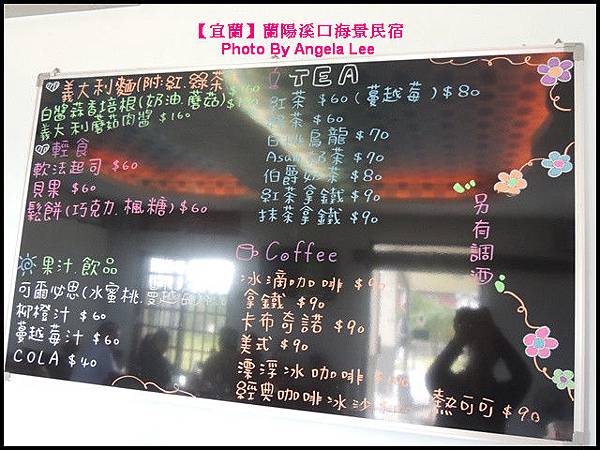 【宜蘭】蘭陽溪口海景民宿
Photo By Angela Lee
義大利麵(附:紅.綠茶)
白醬蒜香培根(奶油.蘑菇)
義大利蘑菇肉醬 $160
輕食
軟法起司 $60
貝果 $60
鬆餅(巧克力.楓糖) $60
果汁.飲品
可爾必思(水蜜桃.蔓越莓)
柳橙汁 $60
蔓越莓汁 $60
COLA $40
TEA
紅茶 $60 (蔓越莓) $80
茶 $60
烏龍 $70
奶茶 $70
伯爵奶茶 $80
紅茶拿鐵 $90
抹茶拿鐵 $90
Coffee
冰滴咖啡
拿鐵 $90
卡布奇諾 $90
美式 $90
漂浮冰咖啡
經典咖啡冰沙
熱可可 $90
另有調酒